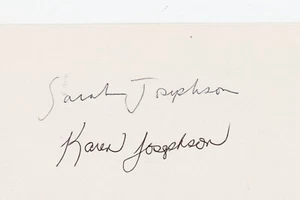 Sarah Josephson
Karen Josephson